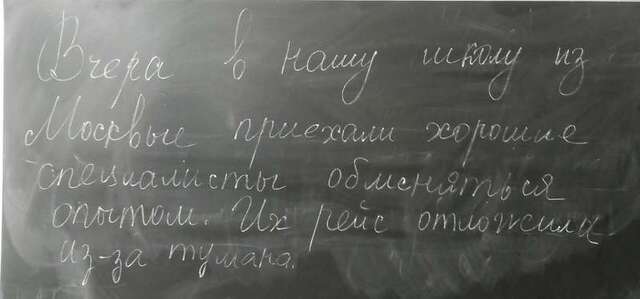 Вчера в нашу школу из
Москвые приехали хорошие
специалисты обменяться
опытом. Их рейс отложили
из-за тумана.